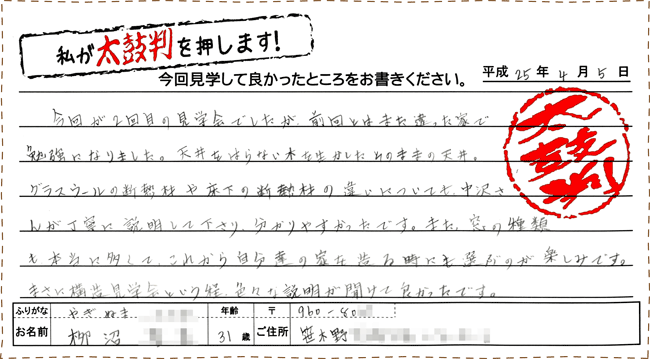 私が太鼓判を押します!
今回見学して良かったところをお書きください。 平成25年4月5日
今回が2回目の見学会でしたが、前回とはまた違った家で
勉強になりました。天井をはらない木を生かしたそのままの天井。
グラスウールの断熱材や床下の断熱材の違いについても、中沢さ
んが丁寧に説明して下さり、分かりやすかったです。また、窓の種類
も本当に多くて、これから自分達の家を造る時にも選ぶのが楽しみです。
まさに構造見学会という程、色々な説明が聞けて良かったです。
太鼓判
ふりがな やぎぬま 年齢 〒 960-80
お名前 柳沼 31歳 ご住所 笹木野